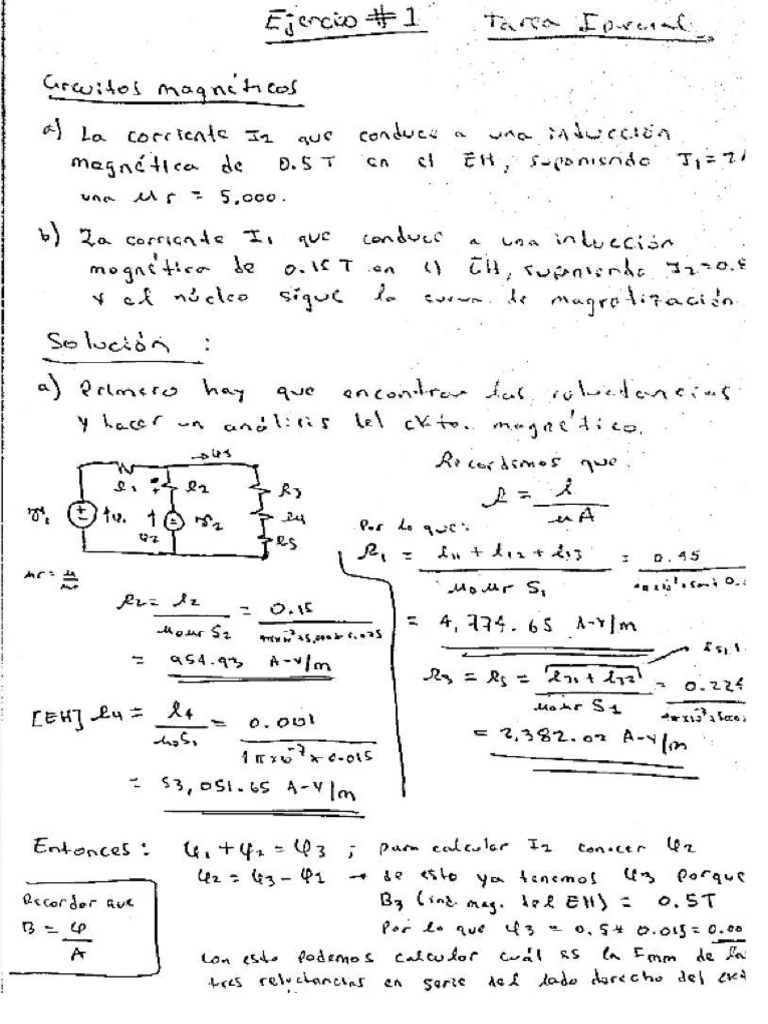 Ejercio #1 Tarea I parcial
Circuitos magnéticos
a) La corriente I2 que conduce a una inducción
magnética de 0.5T en el EH, suponiendo I1 =
una Mr = 5,000.
b) La corriente I1 que conduce a una inducción
magnética de 0.15T en el EH, suponiendo I2 = 0.
y el núcleo sigue la curva de magnetización
Solución:
a) Primero hay que encontrar las reluctancias
y hacer un análisis del ckto. magnético.
Recordemos que:
R = l / μA
Por lo que:
R1 = l11 + l12 + l13 / μoμr S1 = 0.45
= 4,774.65 A-V/m
R2 = l2 / μoμr S2 = 0.15
= 954.93 A-V/m
R3 = R5 = l31 + l32 / μoμr S1 = 0.225
= 2,382.02 A-V/m
[EH] R4 = l4 / μoS1 = 0.001 / 4πx10⁻⁷ x 0.015
= 53,051.65 A-V/m
Entonces: φ1 + φ2 = φ3 ; para calcular I2 conocer φ2
φ2 = φ3 - φ1 → de esto ya tenemos φ3 porque
B3 (ind. mag. del EH) = 0.5T
Por lo que φ3 = 0.5 * 0.015 = 0.00
Recordar que
B = φ / A
con esto podemos calcular cuál es la Fmm de las
tres reluctancias en serie del lado derecho del